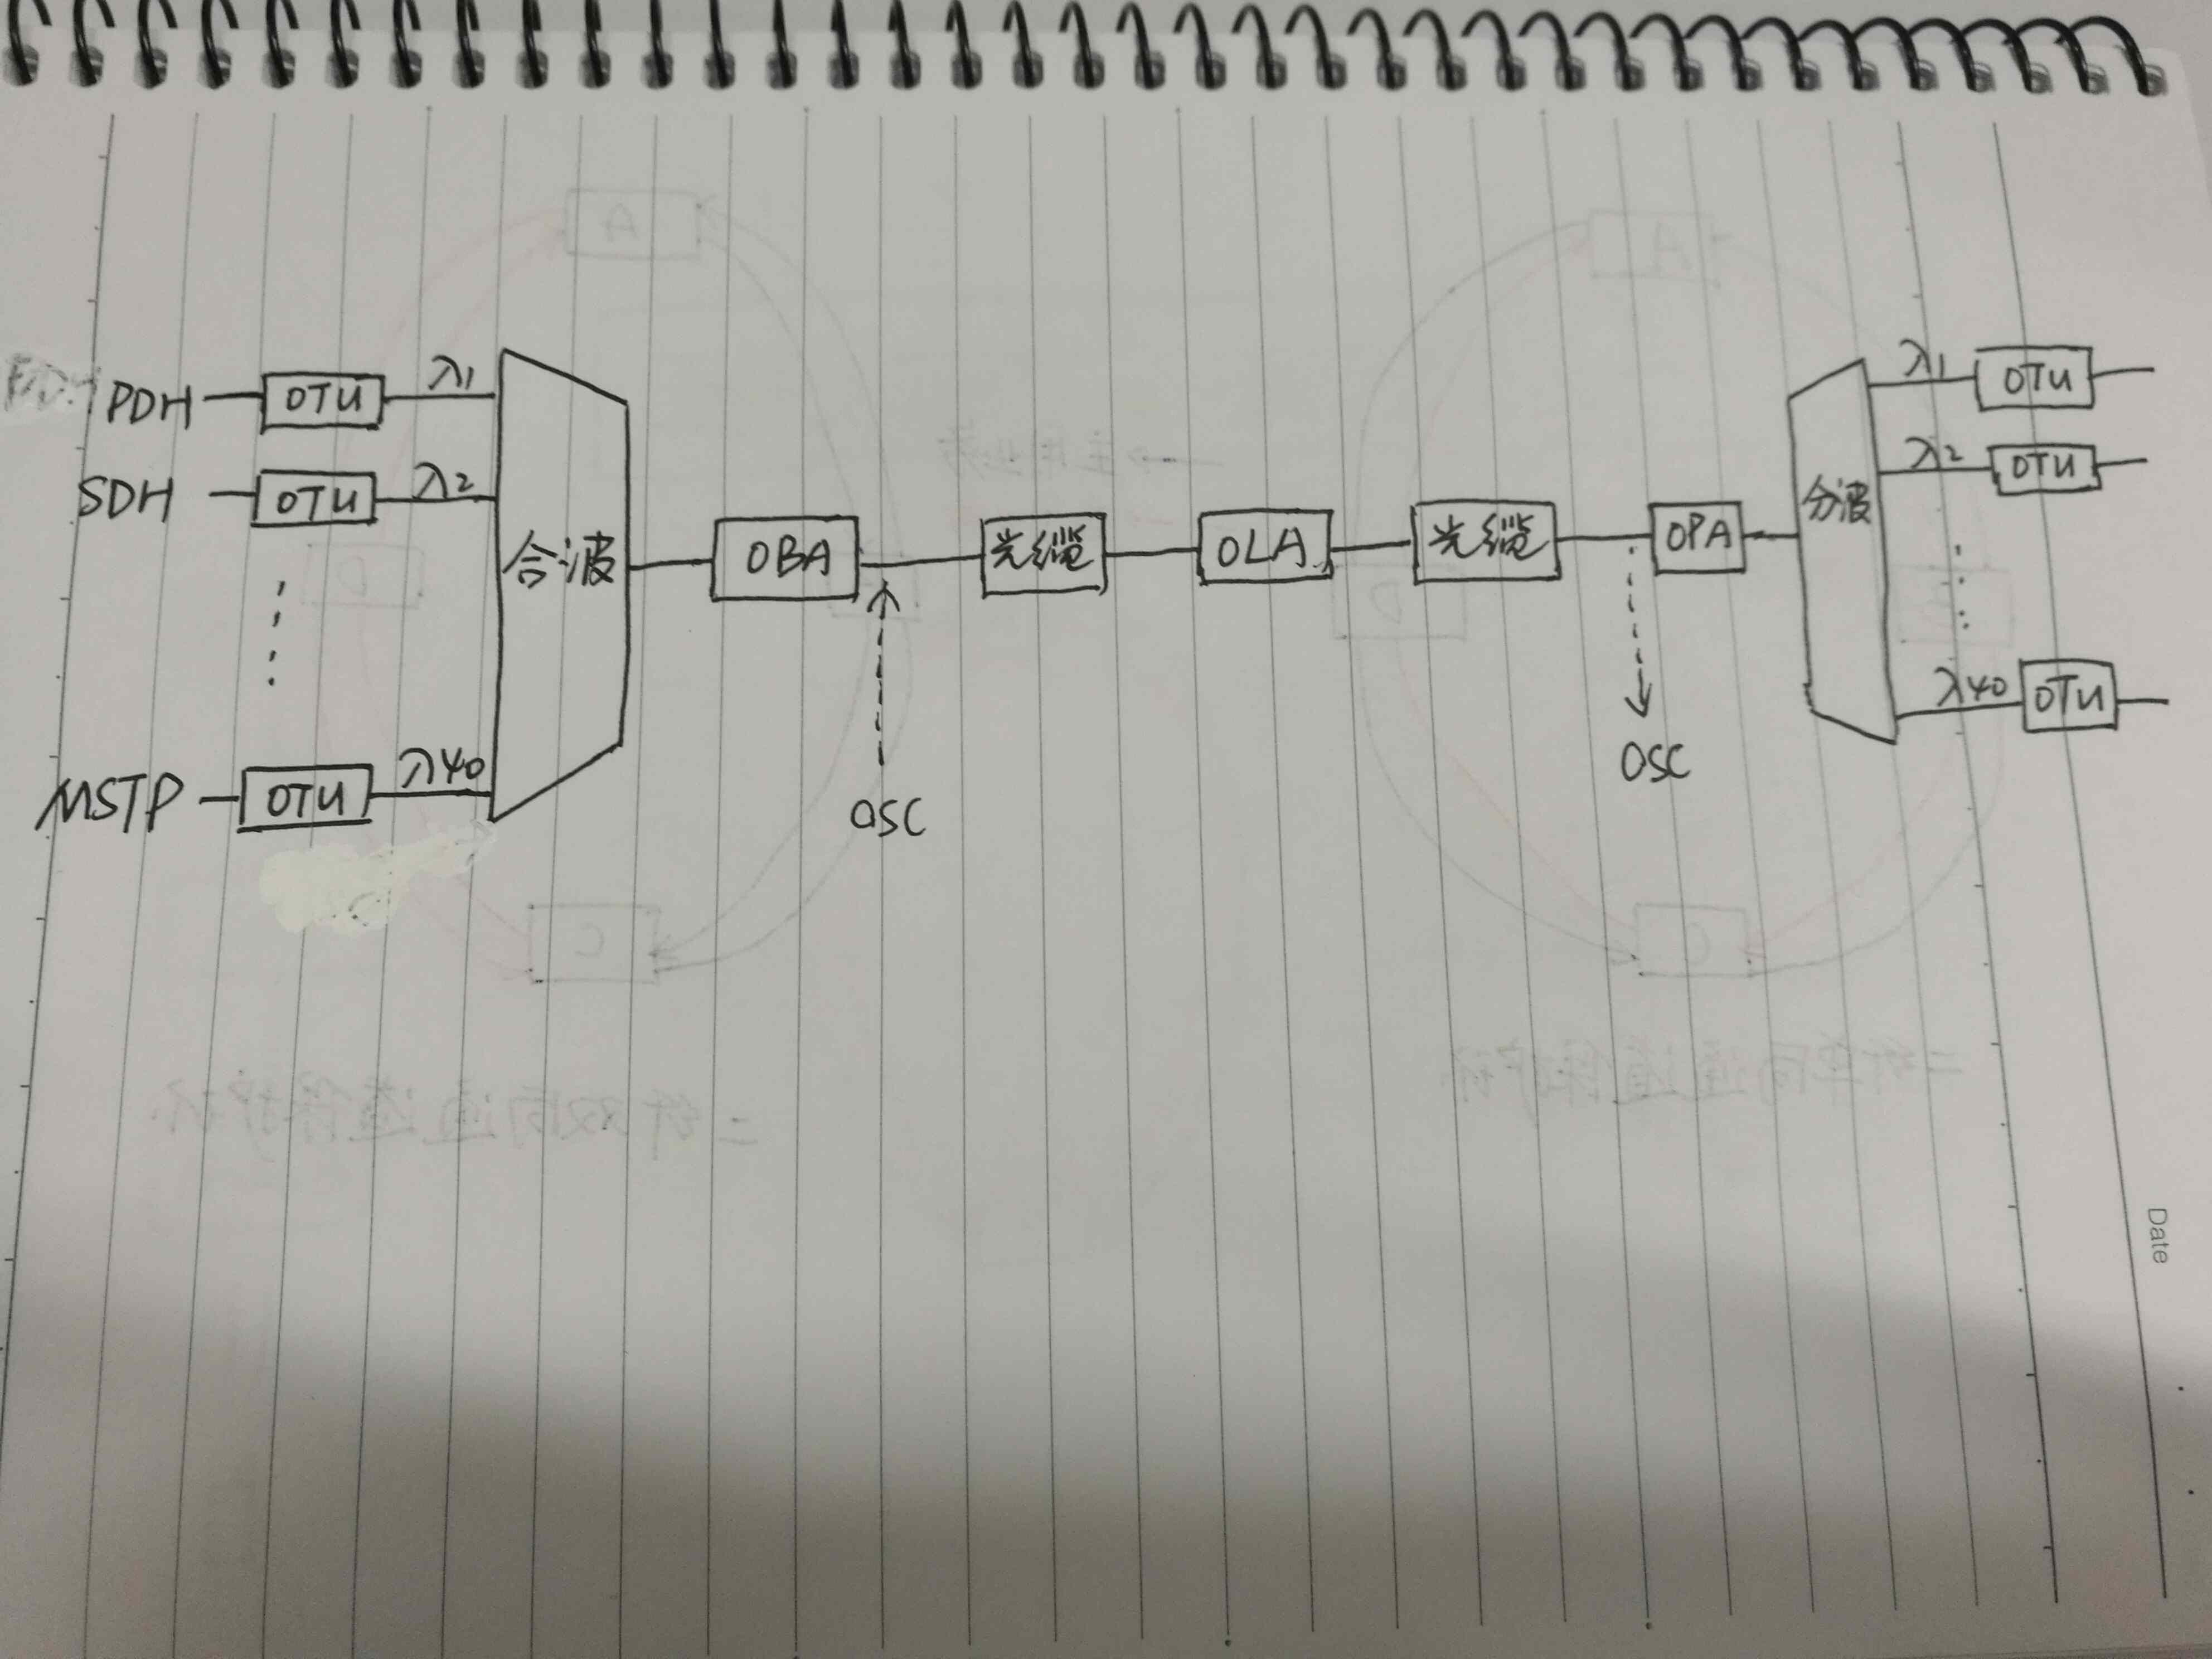 PDH OTU λ1
SDH OTU λ2
MSTP OTU λ40
合波
OBA
OSC
光缆
OLA
光缆
OPA
OSC
分波
λ1 OTU
λ2 OTU
λ40 OTU
Date